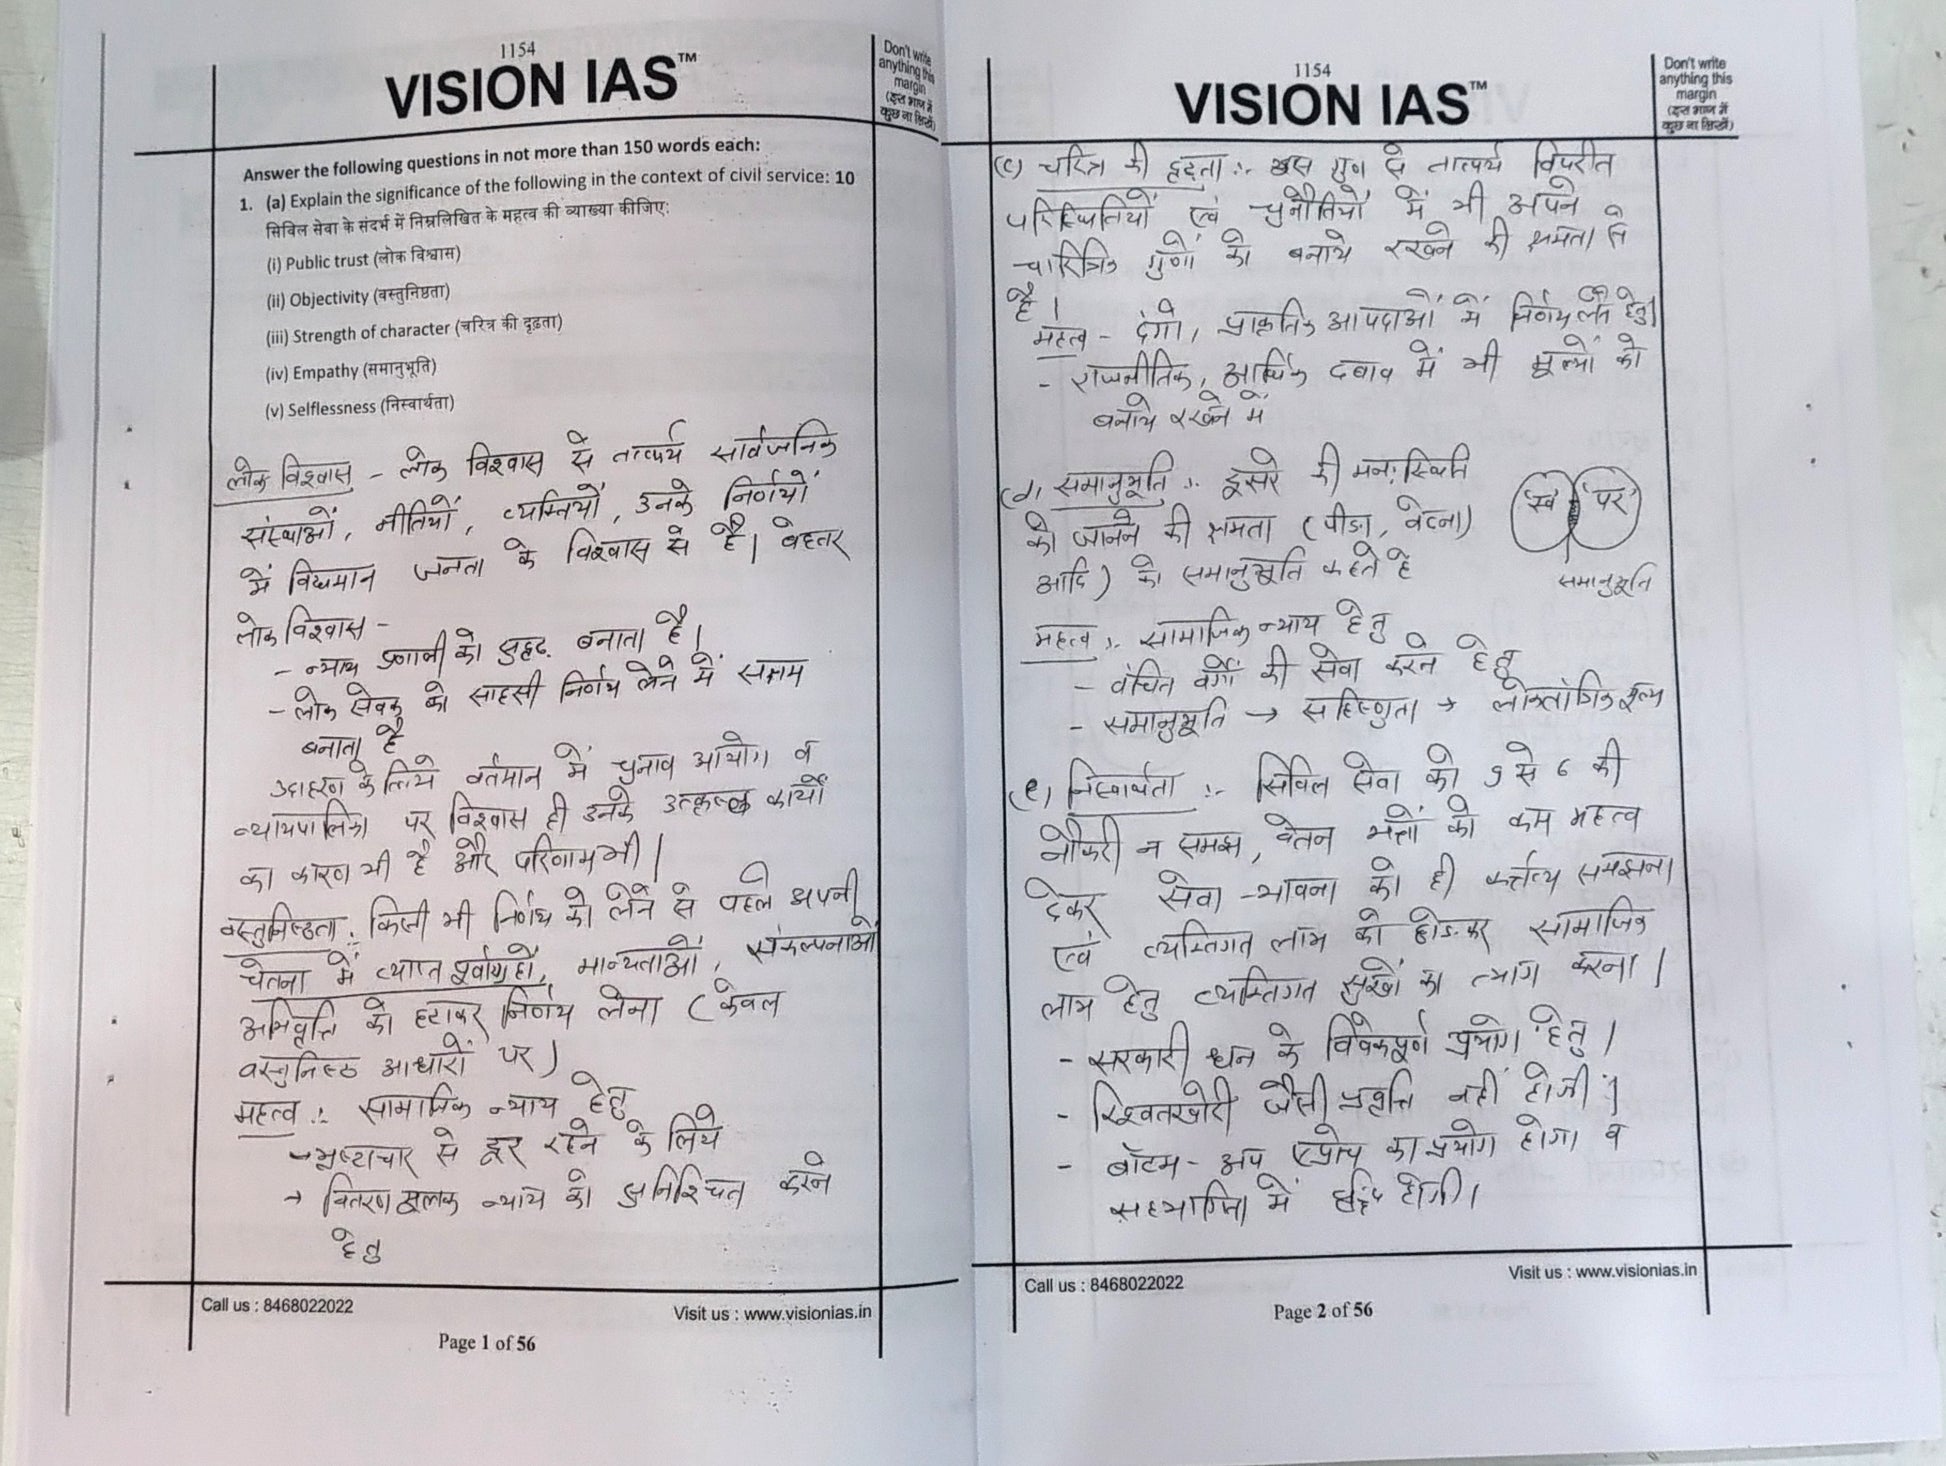 1154
VISION IAS™
Don't write
anything this
margin
(इस भाग में
कुछ ना लिखें)
Answer the following questions in not more than 150 words each:
1. (a) Explain the significance of the following in the context of civil service: 10
सिविल सेवा के संदर्भ में निम्नलिखित के महत्व की व्याख्या कीजिए:
(i) Public trust (लोक विश्वास)
(ii) Objectivity (वस्तुनिष्ठता)
(iii) Strength of character (चरित्र की दृढ़ता)
(iv) Empathy (समानुभूति)
(v) Selflessness (निस्वार्थता)
लोक विश्वास - लोक विश्वास से तात्पर्य सार्वजनिक
संस्थाओं, नीतियों, व्यक्तियों, उनके निर्णयों
में विद्यमान जनता के विश्वास से है। बेहतर
लोक विश्वास -
- न्याय प्रणाली को सुदृढ़ बनाता है।
- लोक सेवक को साहसी निर्णय लेने में सक्षम
बनाता है
उदाहरण के लिये वर्तमान में चुनाव आयोग व
न्यायपालिका पर विश्वास ही उनके कार्यों
का कारण भी है और परिणाम भी।
वस्तुनिष्ठता : किसी भी निर्णय को लेने से पहले अपनी
चेतना में व्याप्त पूर्वाग्रहों, मान्यताओं, संकल्पनाओं
अभिवृत्ति को हटाकर निर्णय लेना (केवल
वस्तुनिष्ठ आधारों पर)
महत्व :- सामाजिक न्याय हेतु
→ भ्रष्टाचार से दूर रहने के लिये
→ वितरणमूलक न्याय को सुनिश्चित करने
हेतु
Call us : 8468022022
Visit us : www.visionias.in
Page 1 of 56
1154
VISION IAS™
Don't write
anything this
margin
(इस भाग में
कुछ ना लिखें)
(c) चरित्र की दृढ़ता :- इस गुण से तात्पर्य विपरीत
परिस्थितियों एवं चुनौतियों में भी अपने
चारित्रिक गुणों को बनाये रखने की क्षमता से
है।
महत्व - दंगो, प्राकृतिक आपदाओं में निर्णय लेने हेतु।
- राजनीतिक, आर्थिक दबाव में भी मूल्यों को
बनाये रखने में
(d) समानुभूति :- दूसरे की मनःस्थिति
को जानने की क्षमता (पीड़ा, वेदना)
आदि) को समानुभूति कहते है
'स्व' 'पर'
समानुभूति
महत्व :- सामाजिक न्याय हेतु
- वंचित वर्गों की सेवा करने हेतु
- समानुभूति → सहिष्णुता → लोकतांत्रिक मूल्य
(e) निस्वार्थता :- सिविल सेवा को 9 से 6 की
नौकरी न समझ, वेतन भत्तों को कम महत्व
देकर सेवा-भावना को ही कर्त्तव्य समझना
एवं व्यक्तिगत लाभ को छोड़कर सामाजिक
लाभ हेतु व्यक्तिगत सुखों का त्याग करना।
- सरकारी धन के विवेकपूर्ण प्रयोग हेतु।
- रिश्वतखोरी जैसी प्रवृत्ति नहीं होगी।
- बॉटम-अप एप्रोच का प्रयोग होगा व
सहभागिता में वृद्धि होगी।
Call us : 8468022022
Visit us : www.visionias.in
Page 2 of 56